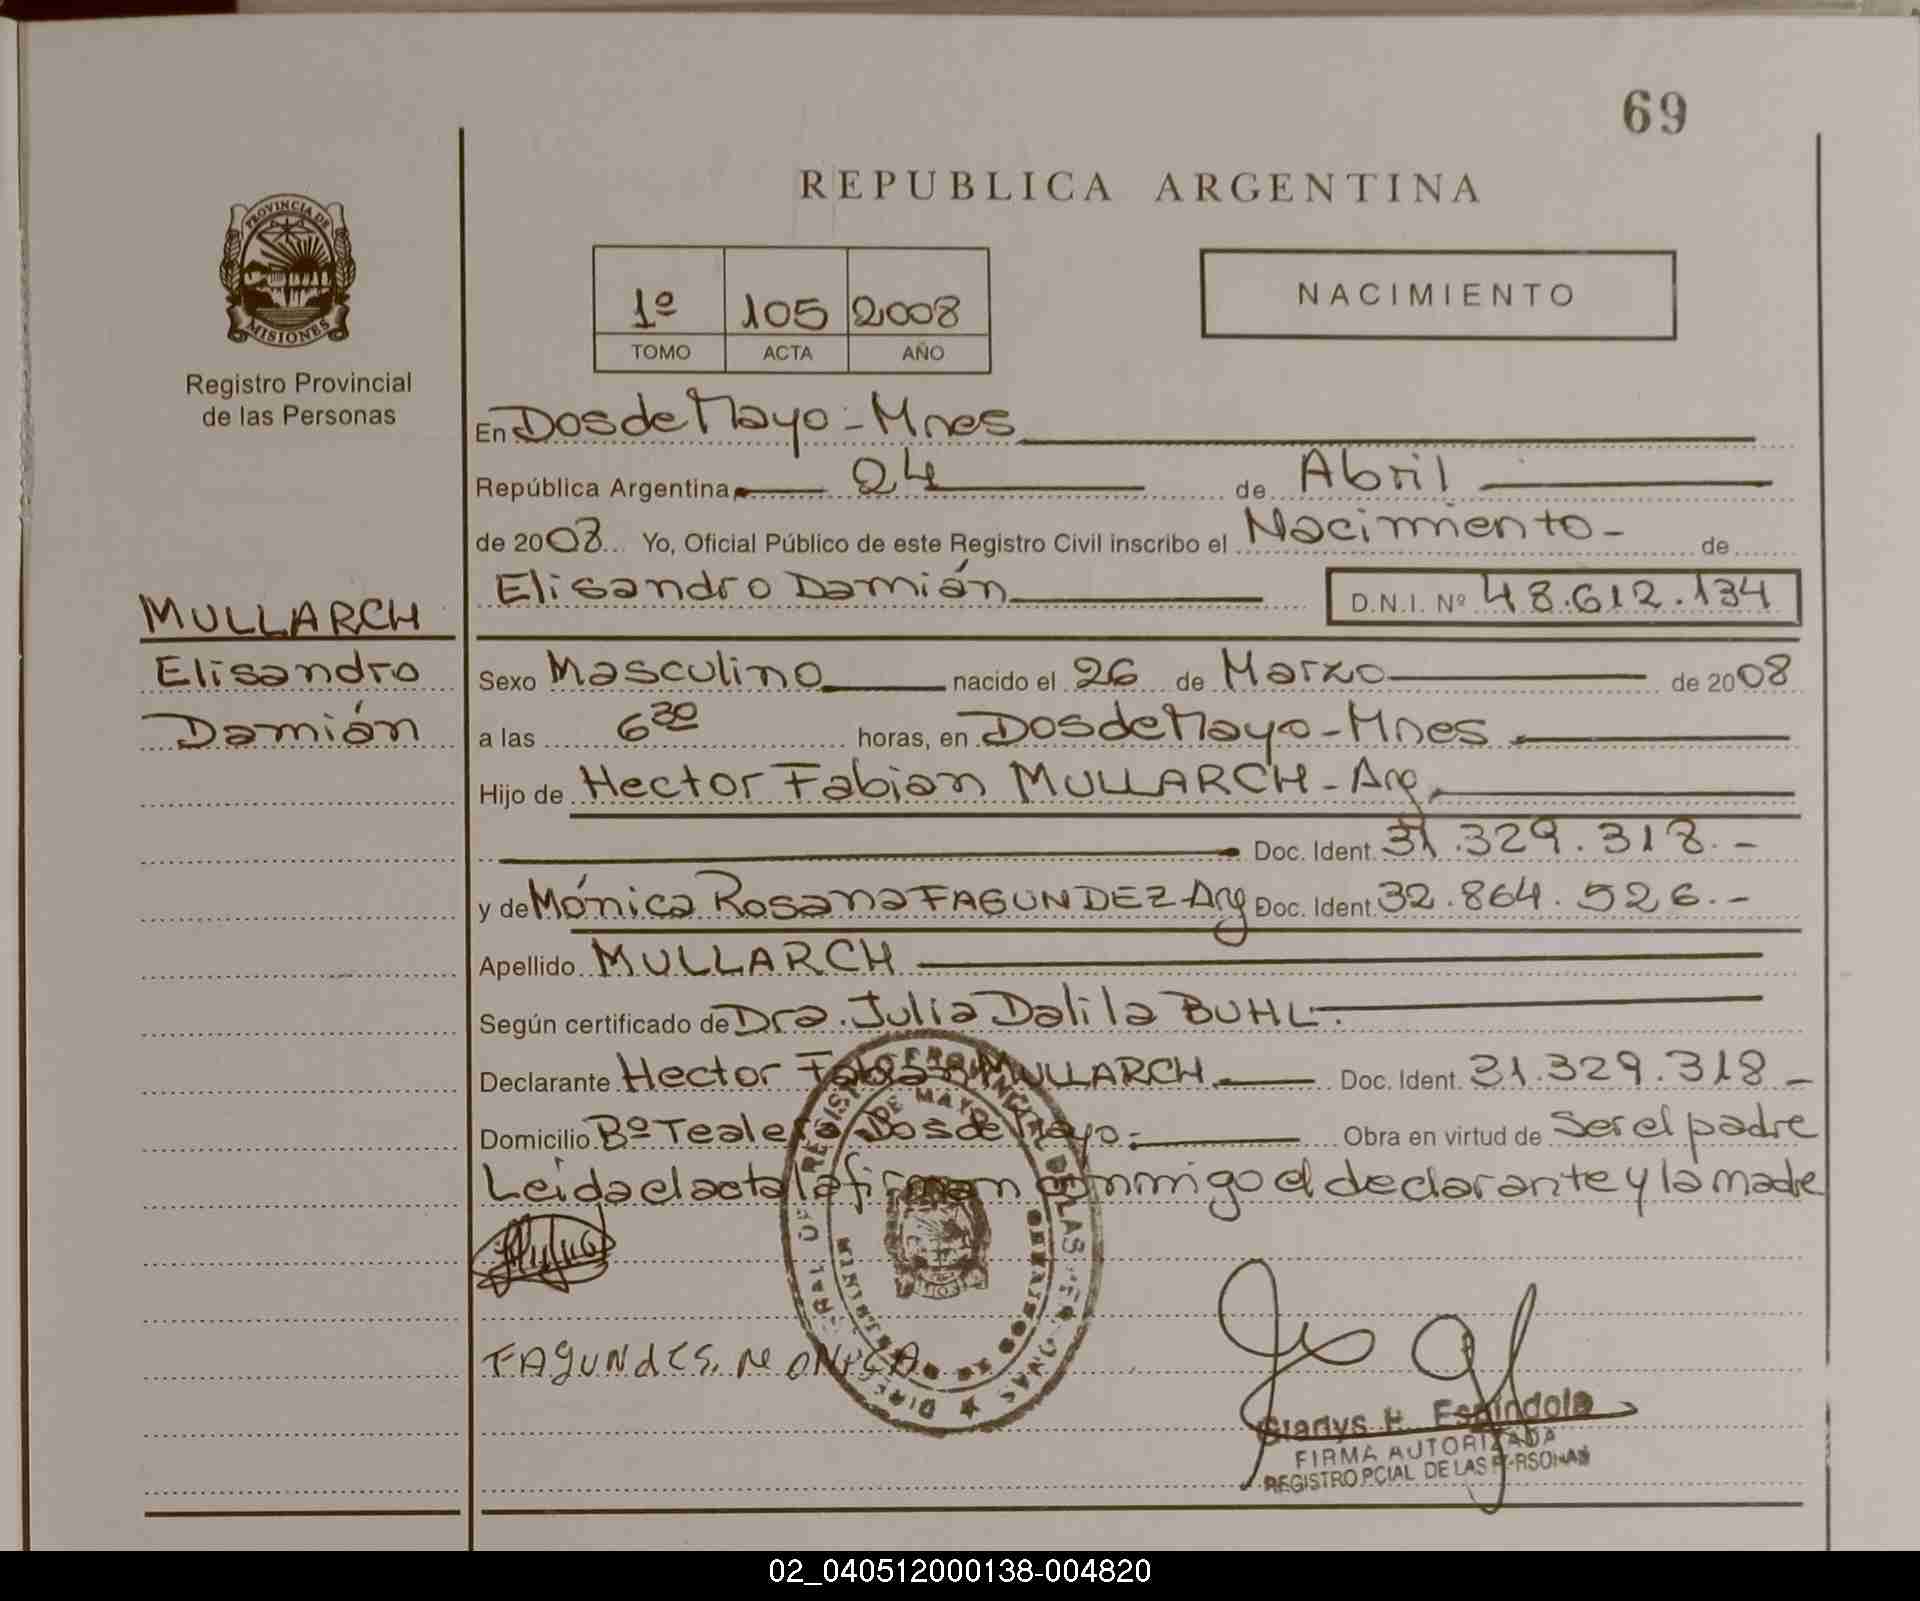 69
REPUBLICA ARGENTINA
PROVINCIA DE
MISIONES
Registro Provincial
de las Personas
1º 105 2008
TOMO ACTA AÑO
NACIMIENTO
En Dos de Mayo - Mnes
República Argentina 24 de Abril
de 2008 Yo, Oficial Público de este Registro Civil inscribo el Nacimiento - de
Elisandro Damián D.N.I. Nº 48.612.134
MULLARCH
Elisandro
Damián
Sexo Masculino nacido el 26 de Marzo de 2008
a las 6 30 horas, en Dos de Mayo - Mnes
Hijo de Hector Fabian MULLARCH - Arg
Doc. Ident. 31.329.318.-
y de Mónica Rosana FAGUNDEZ Arg Doc. Ident. 32.864.526.-
Apellido MULLARCH
Según certificado de Dra. Julia Dalila BUHL.
Declarante Hector Fabian MULLARCH Doc. Ident. 31.329.318 -
Domicilio Bº Tealera Dos de Mayo. Obra en virtud de Ser el padre
Leida el acta la firman conmigo el declarante y la madre
FAGUNdES. MONICA
Gladys H. Espindola
FIRMA AUTORIZADA
REGISTRO PCIAL DE LAS PERSONAS
02_040512000138-004820